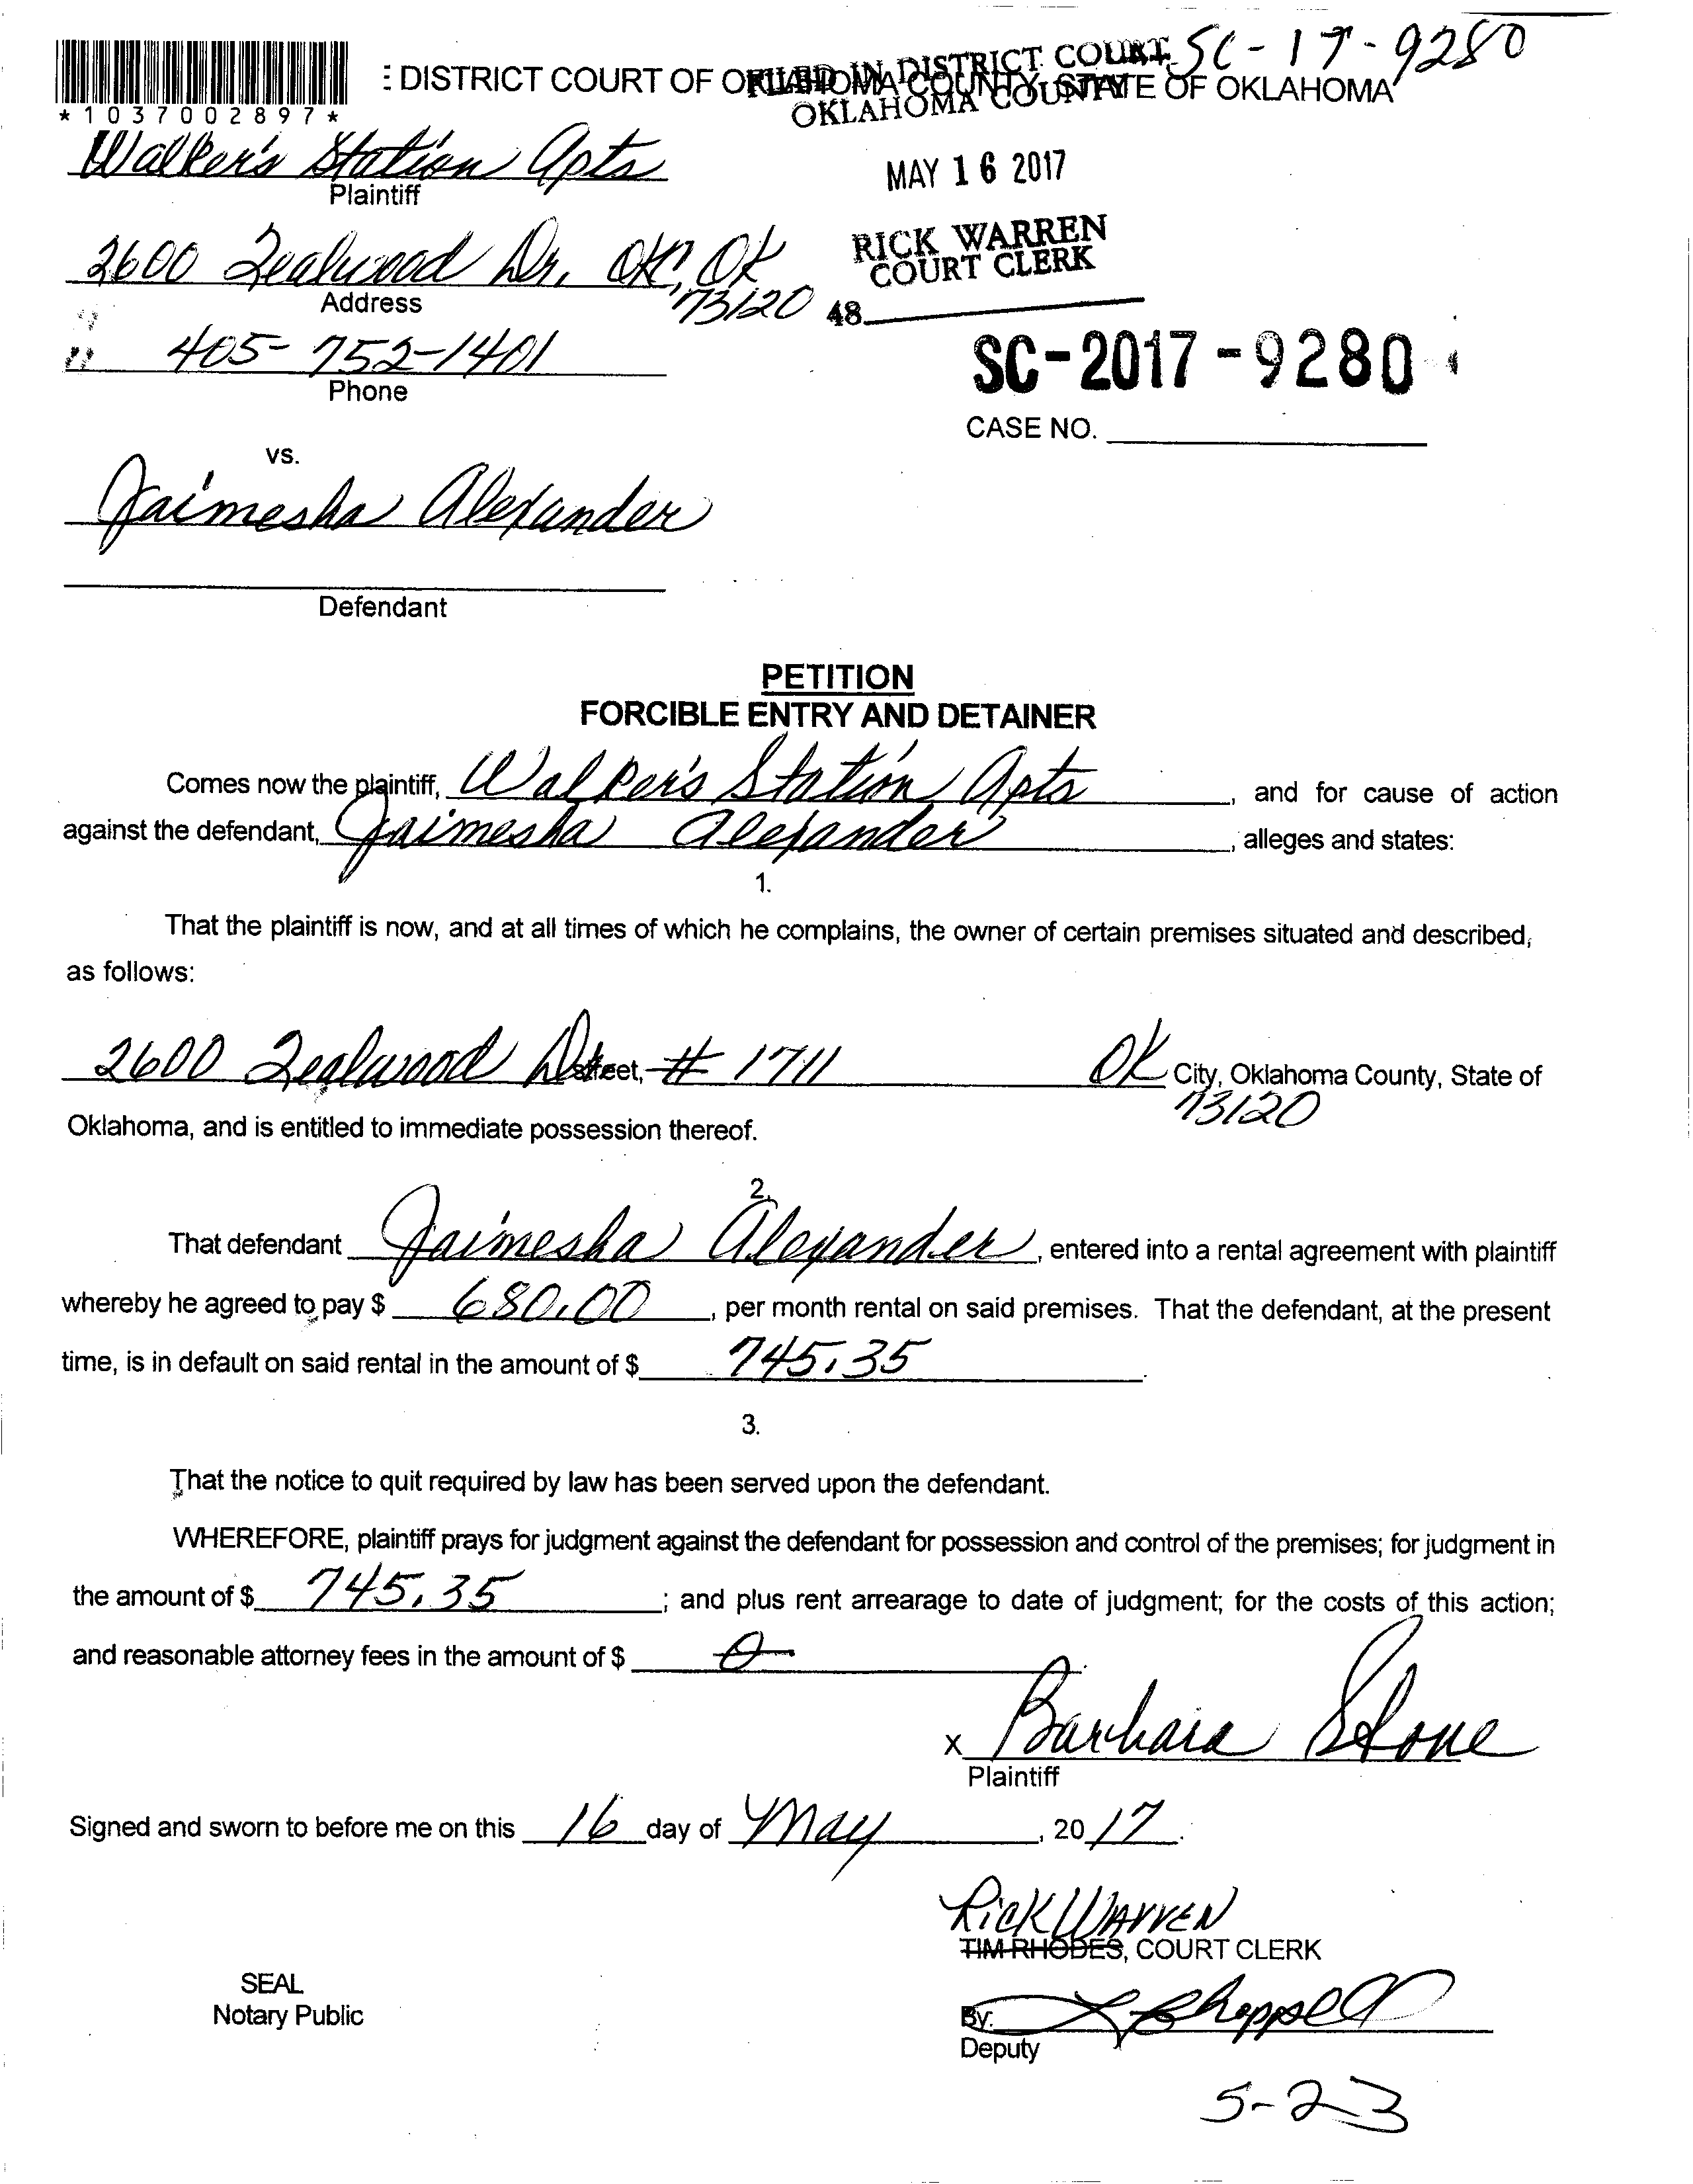 SC-17-9280
: DISTRICT COURT OF OKLAHOMA COUNTY, STATE OF OKLAHOMA
FILED IN DISTRICT COURT
OKLAHOMA COUNTY
*1037002897*
Walker's Station Apts
Plaintiff
MAY 16 2017
RICK WARREN
COURT CLERK
2600 Zealwood Dr, OKC, OK
73120
Address
48
405-752-1401
Phone
SC-2017-9280
CASE NO.
vs.
Jaimesha Alexander
Defendant
PETITION
FORCIBLE ENTRY AND DETAINER
Comes now the plaintiff, Walker's Station Apts, and for cause of action
against the defendant, Jaimesha Alexander, alleges and states:
1.
That the plaintiff is now, and at all times of which he complains, the owner of certain premises situated and described,
as follows:
2600 Zealwood Dr street, # 1711 OK City, Oklahoma County, State of
73120
Oklahoma, and is entitled to immediate possession thereof.
2.
That defendant Jaimesha Alexander, entered into a rental agreement with plaintiff
whereby he agreed to pay $ 680.00, per month rental on said premises. That the defendant, at the present
time, is in default on said rental in the amount of $ 745.35.
3.
That the notice to quit required by law has been served upon the defendant.
WHEREFORE, plaintiff prays for judgment against the defendant for possession and control of the premises; for judgment in
the amount of $ 745.35; and plus rent arrearage to date of judgment; for the costs of this action;
and reasonable attorney fees in the amount of $ 0.
x Barbara Stone
Plaintiff
Signed and sworn to before me on this 16 day of May, 2017.
Rick Warren
TIM RHODES, COURT CLERK
SEAL
Notary Public
By:
Deputy
5-23